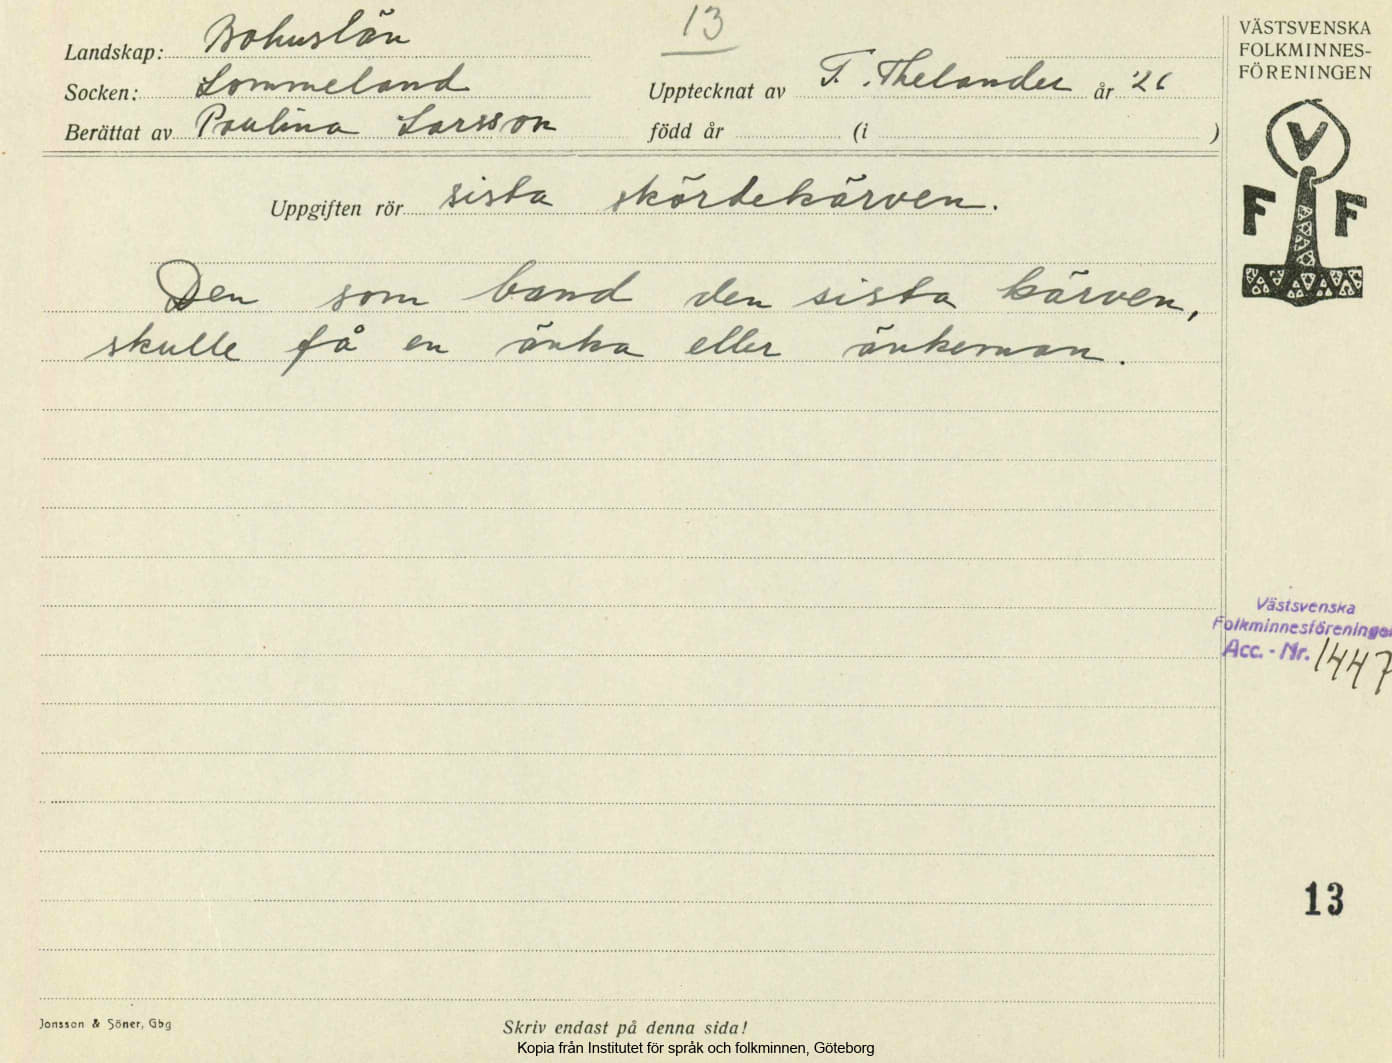 13
Landskap: Bohuslän
Socken: Lommeland
Upptecknat av T. Thelander år '26
Berättat av Paulina Larsson född år (i )
Uppgiften rör sista skördekärven.
Den som band den sista kärven,
skulle få en änka eller änkeman.
VÄSTSVENSKA
FOLKMINNES-
FÖRENINGEN
V
F F
Västsvenska
Folkminnesföreningen
Acc. - Nr. 1447
13
Jonsson & Söner, Gbg
Skriv endast på denna sida!
Kopia från Institutet för språk och folkminnen, Göteborg